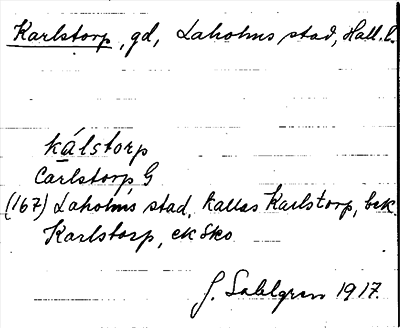 Karlstorp, gd, Laholms stad, Hall. l.
kálstorp
Carlstorp G
(167) Laholms stad, kallas Karlstorp, bek.
Karlstorp, ek Sko
J. Sahlgren 1917.